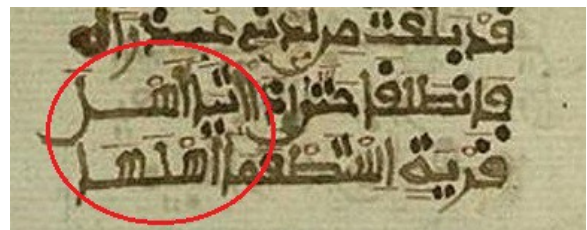 قد بلغت من لدني عذرا
فانطلقا حتى إذا أتيا أهل
قرية استطعما أهلها